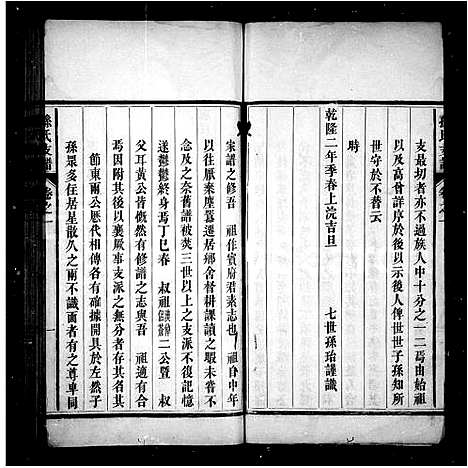 支最切者亦不過族人中十分之一二焉由始祖
以及高曾詳序於後以示後人俾世世子孫知所
世守於不替云
時
乾隆二年季春上浣吉旦
七世孫珆謹識
家譜之修吾 祖作賓府君素志也 祖自中年
以往厭棄塵囂遷居鄉舍督耕課讀之暇未嘗不
念之奈舊譜被燬三世以上支派不復記憶
遂鬱鬱終身焉丁巳春 叔祖 二公暨 叔
父耳黃公昔慨然有修譜之志與吾 祖適有合
焉因附其後以襄厥事支派之無分者存其名其
節東兩公歷代相傳各有確據開具於左然子
孫眾多住居星散久之而不識面者有之尊卑同
孫氏支譜
卷之一
一